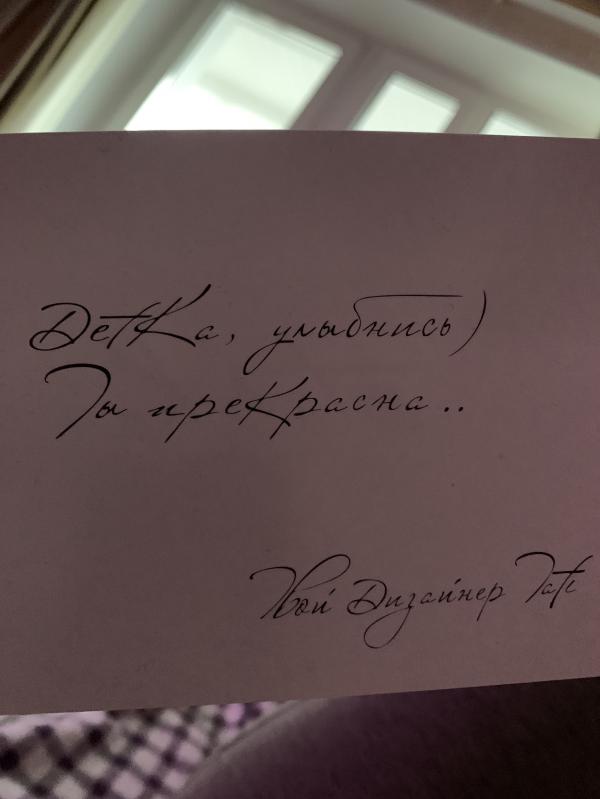 Детка, улыбнись)
Ты прекрасна..
Твой Дизайнер